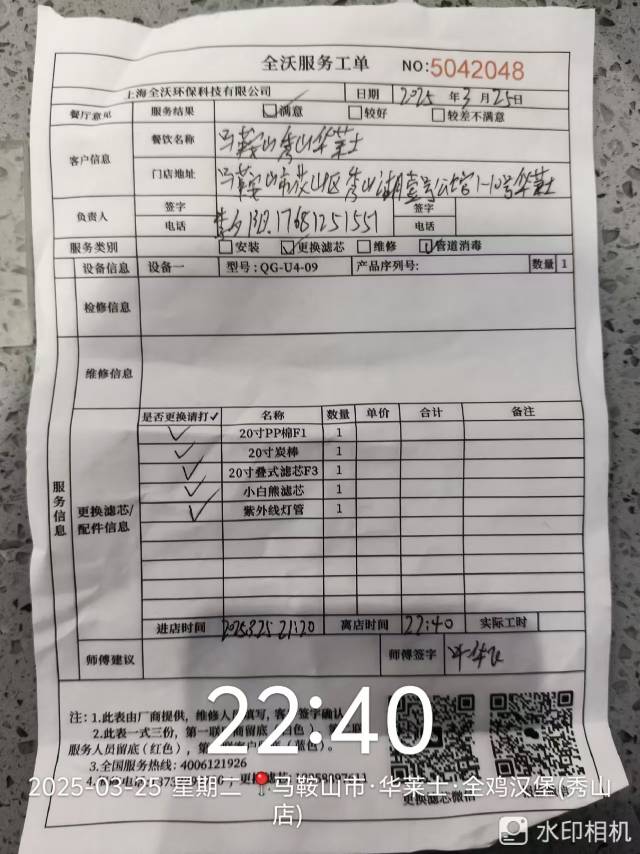 全沃服务工单 NO:5042048
上海全沃环保科技有限公司 日期 2025 年 3 月 25 日
餐厅意见 服务结果 ☑满意 □较好 □较差不满意
客户信息 餐饮名称 马鞍山秀山华莱士
门店地址 马鞍山市 山区秀山湖壹号公馆1-10号华莱士
负责人 签字 签字
电话 17681251551 电话
服务类别 □安装 ☑更换滤芯 □维修 ☑管道消毒
设备信息 设备一 型号:QG-U4-09 产品序列号: 数量 1
检修信息
维修信息
服务信息
更换滤芯/配件信息
是否更换请打✓ 名称 数量 单价 合计 备注
✓ 20寸PP棉F1 1
✓ 20寸炭棒 1
✓ 20寸叠式滤芯F3 1
✓ 小白熊滤芯 1
✓ 紫外线灯管 1
进店时间 2025.3.25 21:20 离店时间 22:40 实际工时
师傅建议 师傅签字
注:1.此表由厂商提供,维修人员填写,客户签字确认
2.此表一式三份,第一联 留底(白色)
服务人员留底(红色),第 (蓝色)。
3.全国服务热线:4006121926
更换滤芯微信
22:40
2025-03-25 星期二 马鞍山市·华莱士·全鸡汉堡(秀山店)
水印相机